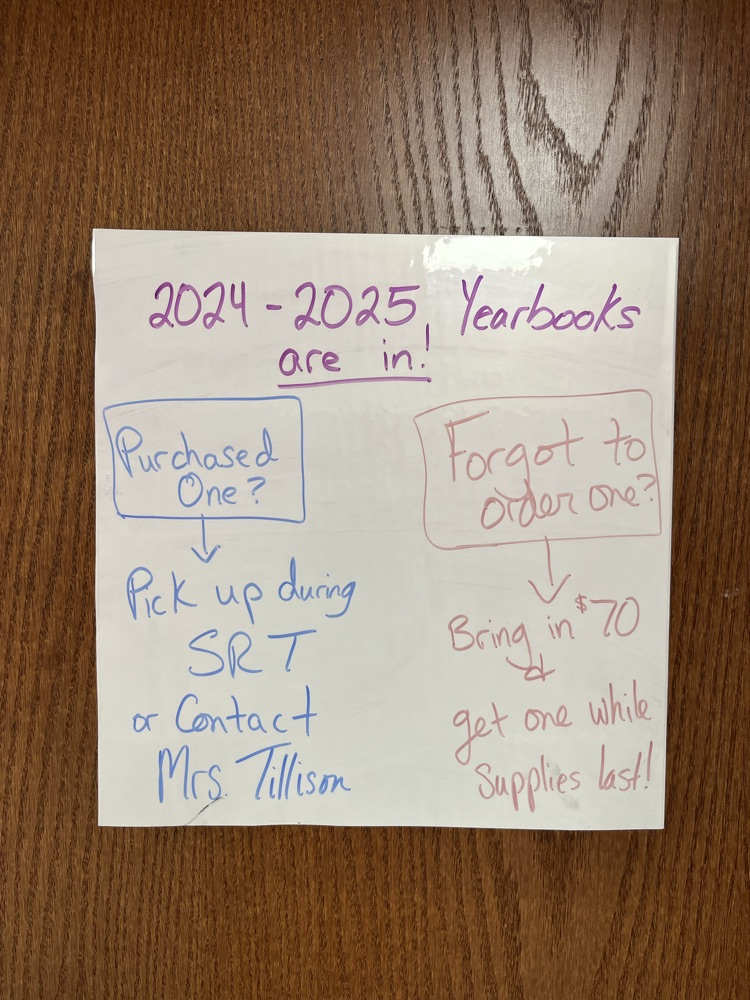 2024-2025 Yearbooks
are in!
Purchased
One?
Pick up during
SRT
or Contact
Mrs. Tillison
Forgot to
order one?
Bring in $70
&
get one while
Supplies last!